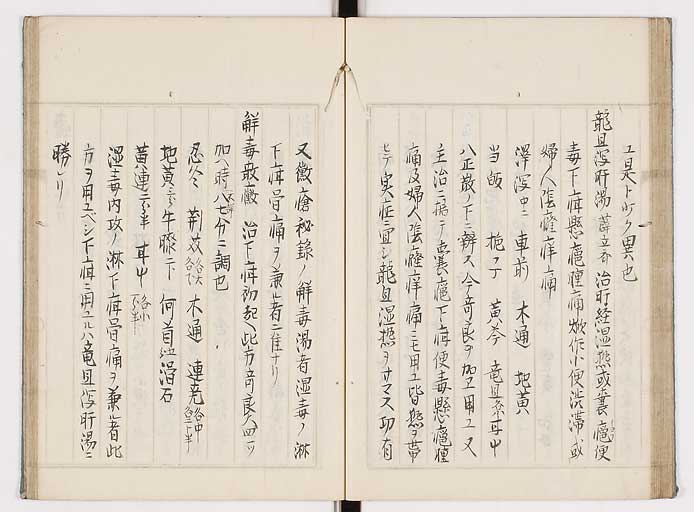 工是ト少ク異也
龍胆瀉肝湯 薛立斎 治肝経湿熱或嚢癰便
毒下疳懸癰腫痛焮作小便渋滞或
婦人陰癃痒痛
澤瀉中 車前 木通 地黄
当皈 梔子 黄芩 竜胆 甘中
八正散ノ下ニ辨ス今奇良ヲ加エ用エ又
主治ニ病テ嚢癰下疳便毒懸癰腫
痛及婦人陰癃痒痛ニモ用エ皆熱ヲ帯
実症ニ宜シ龍胆湿熱ヲサマス功有
又黴瘡秘録ノ解毒湯者湿毒ノ淋
下疳骨痛ヲ兼ル者ニ佳ナリ
解毒散 治下疳初起 此方奇良 四
加ヘ時 八七分ニ調也
忍冬 荊芥 木通 連尭
地黄 牛膝 何首 滑石
黄連 甘中
湿毒内攻ノ淋下疳骨痛ヲ兼ル者此
方ヲ用ユベシ下疳ニ用ユルハ竜胆瀉肝湯ニ
勝レリ